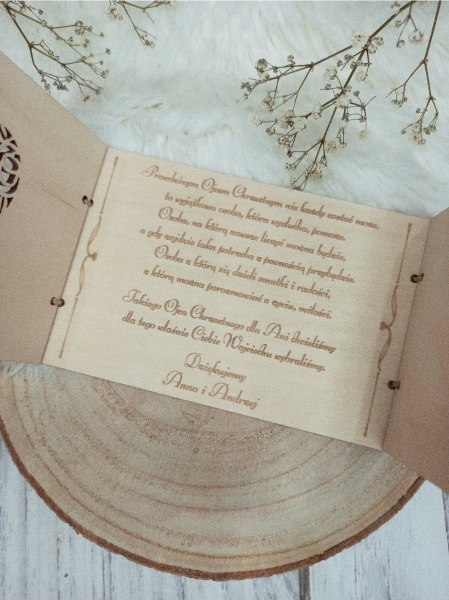 Prawdziwym Ojcem Chrzestnym nie każdy zostać może,
to wyjątkowa osoba, która wysłucha, pomoże.
Osoba, na którą zawsze liczyć można będzie,
a gdy wyjdzie taka potrzeba z pewnością przybędzie.
Osoba z którą się dzieli smutki i radości,
z którą można porozmawiać o życiu, miłości.
Takiego Ojca Chrzestnego dla Ani chcieliśmy
dla tego właśnie Ciebie Wojciechu wybraliśmy.
Dziękujemy
Anna i Andrzej